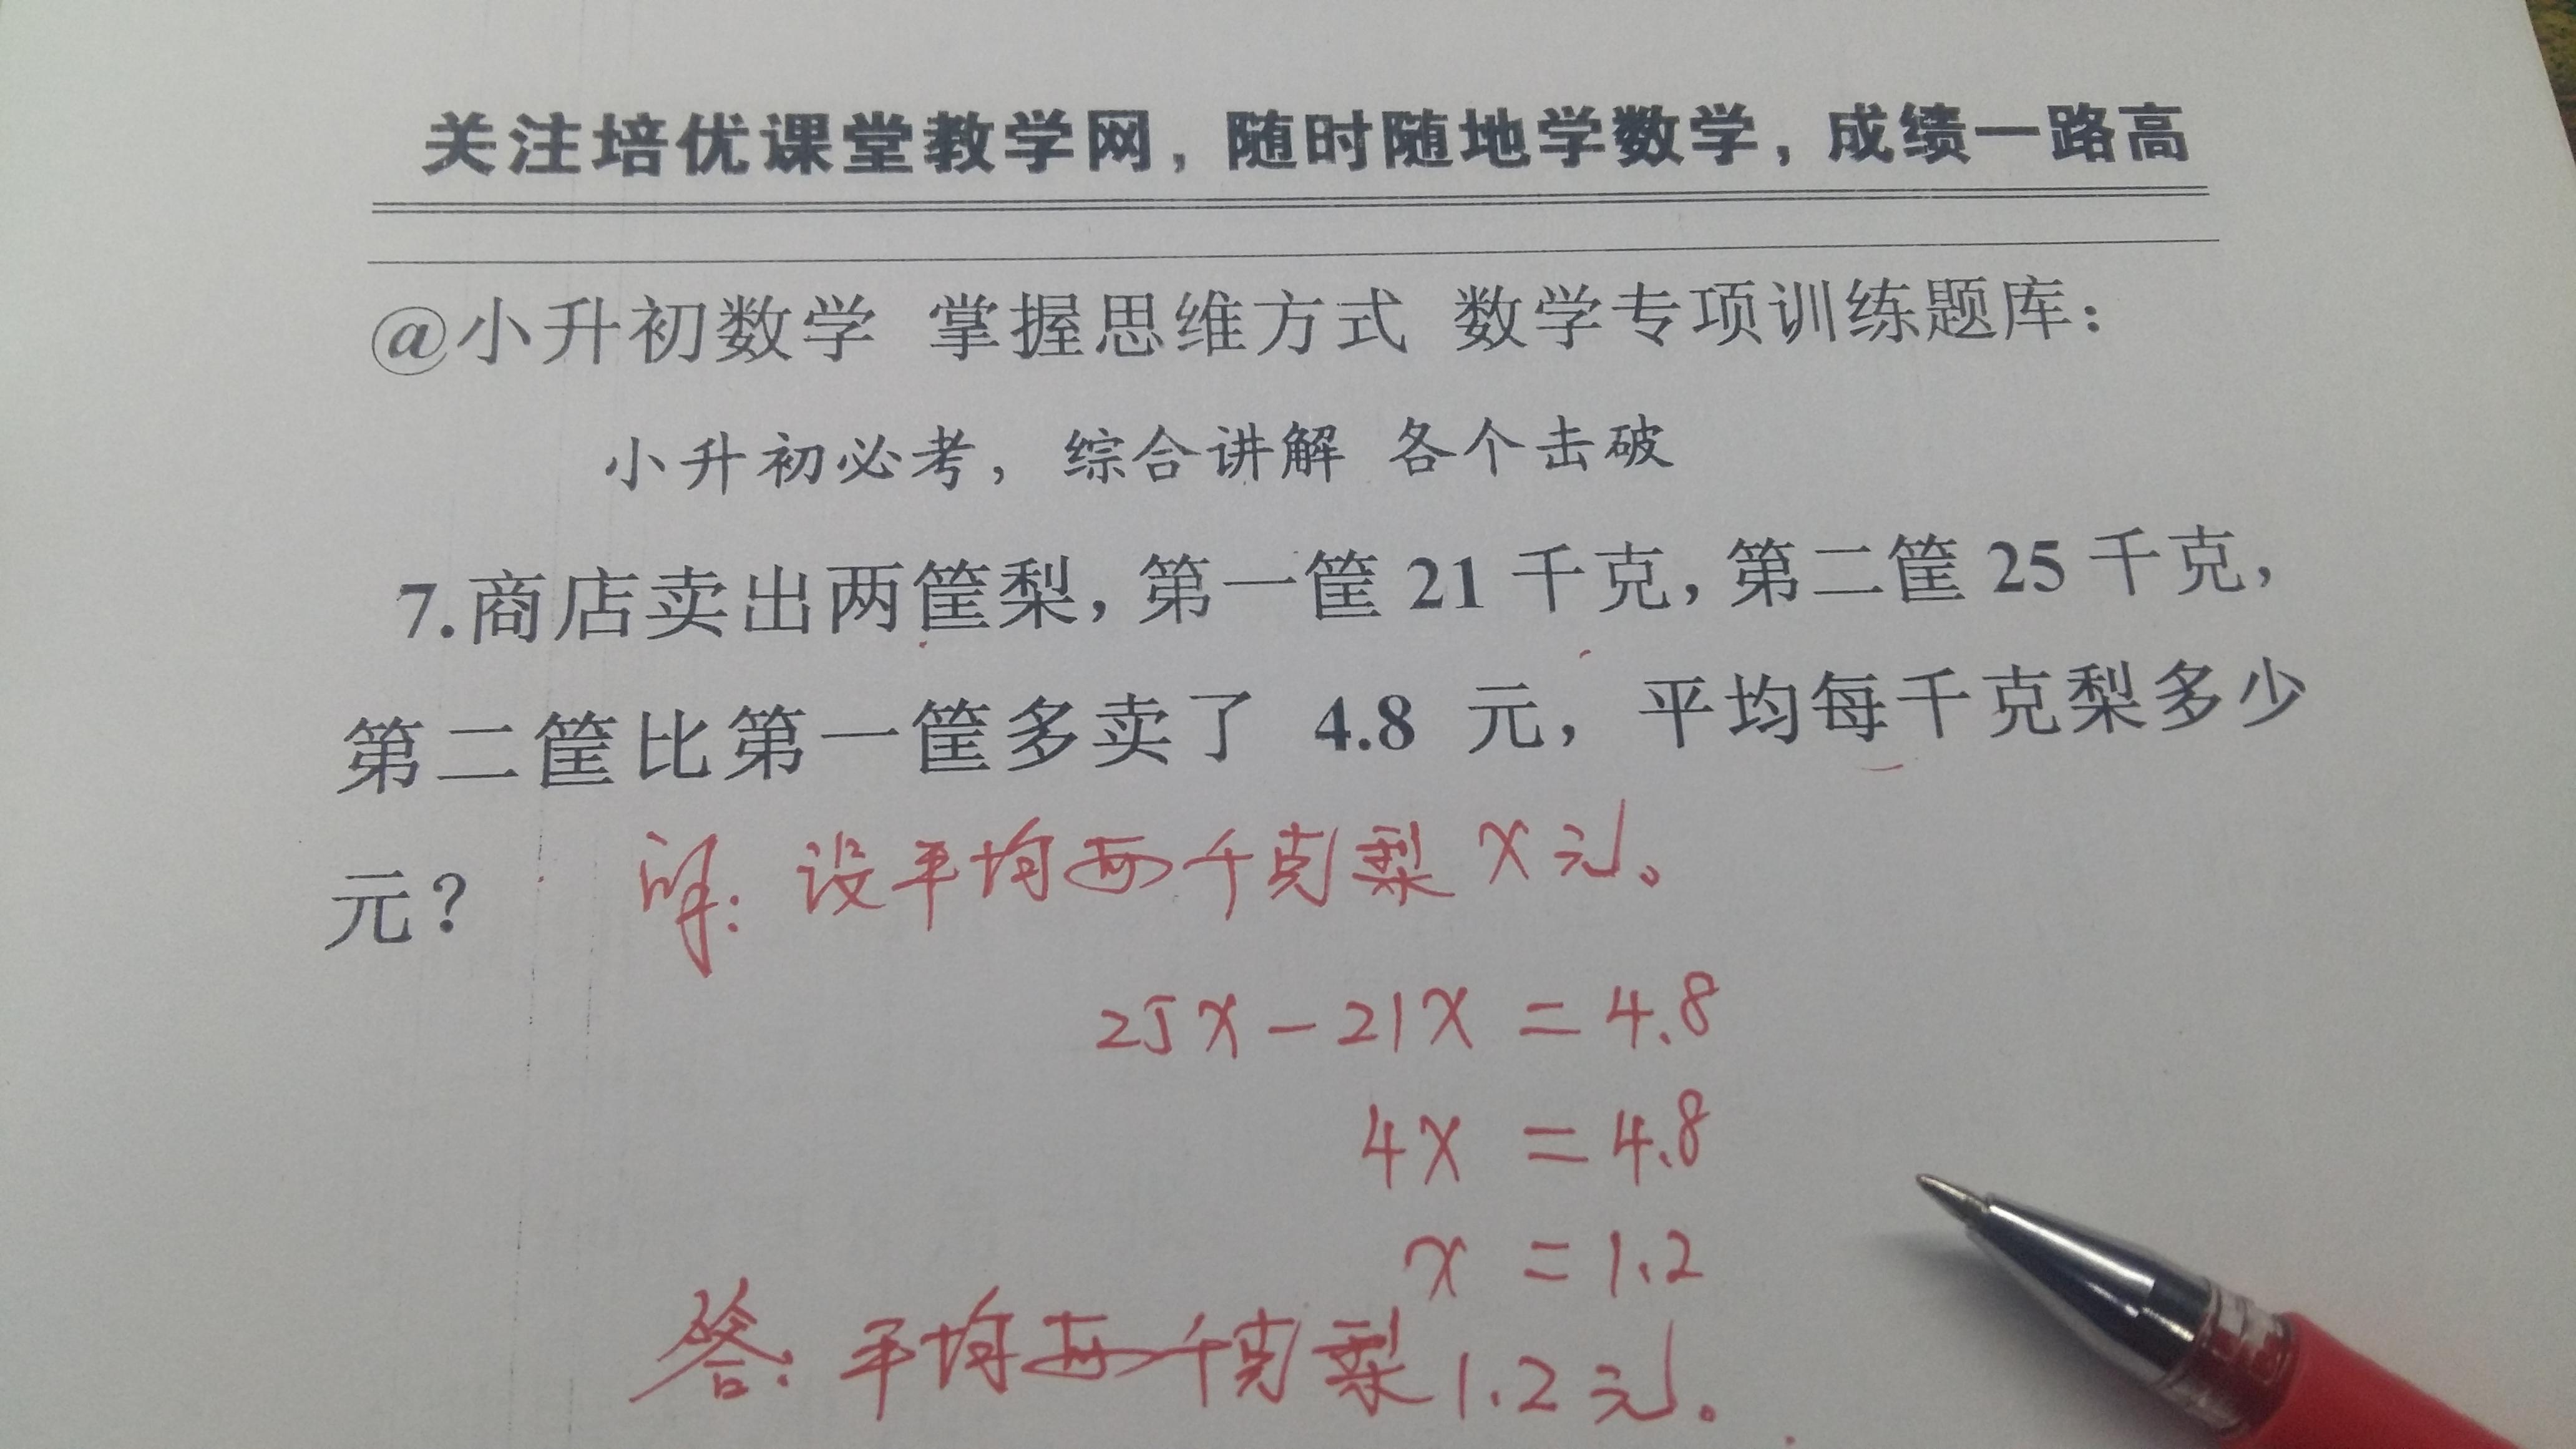 关注培优课堂教学网，随时随地学数学，成绩一路高
@小升初数学 掌握思维方式 数学专项训练题库：
小升初必考，综合讲解 各个击破
7.商店卖出两筐梨，第一筐 21 千克，第二筐 25 千克，
第二筐比第一筐多卖了 4.8 元，平均每千克梨多少
元？ 解：设平均每千克梨 x 元。
25x－21x＝4.8
4x＝4.8
x＝1.2
答：平均每千克梨 1.2 元。